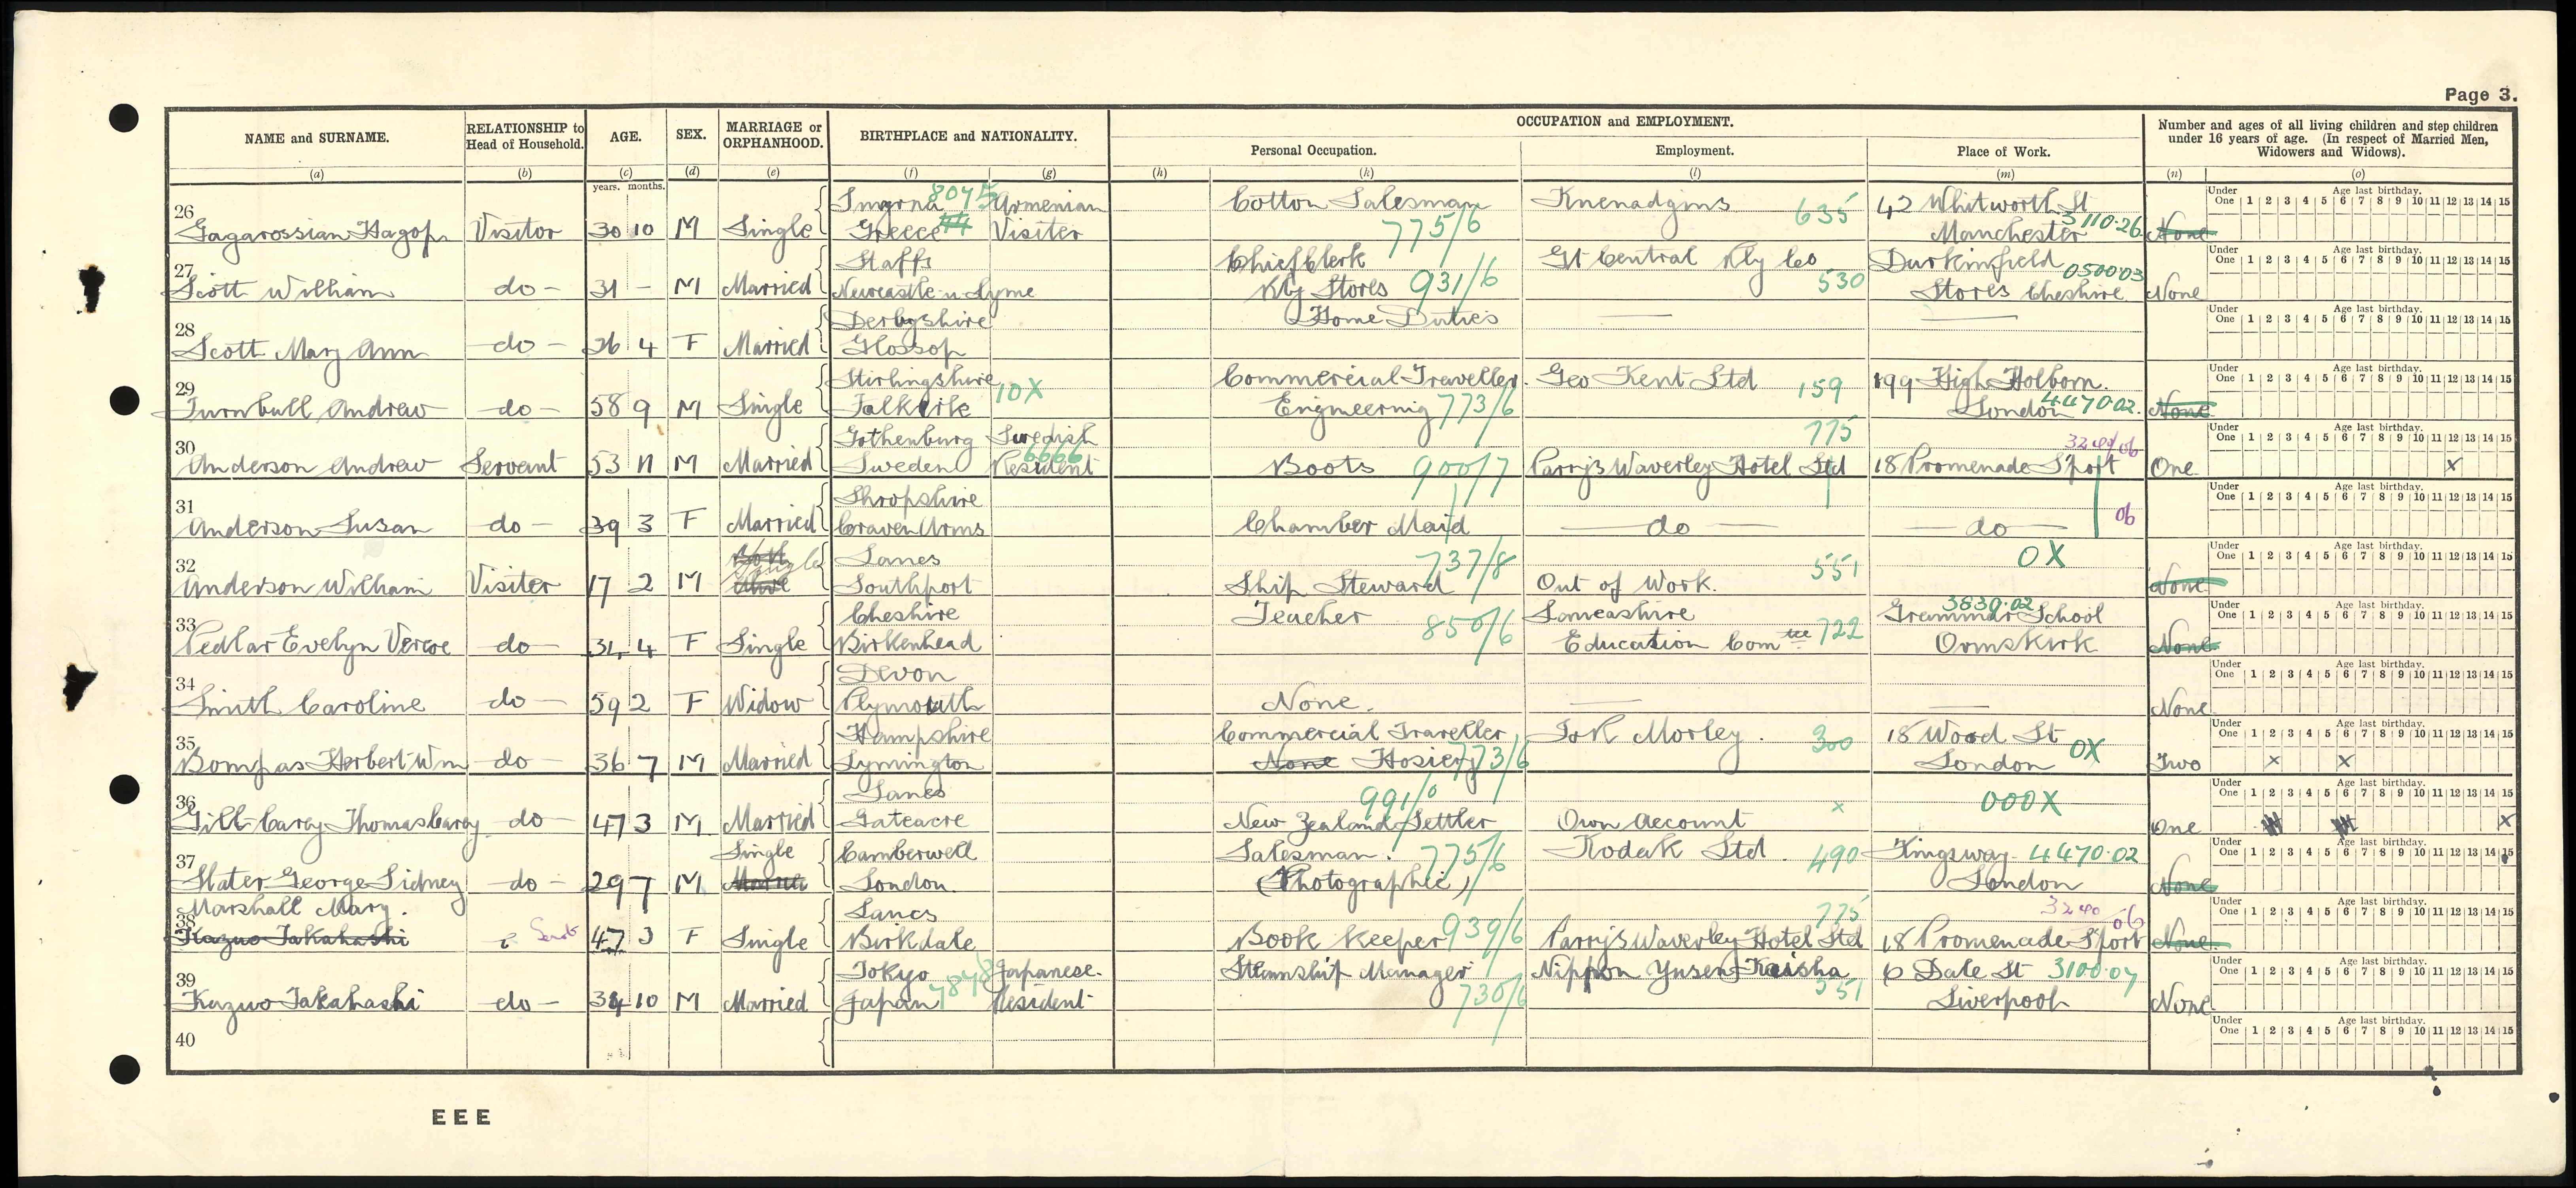 Page 3.
NAME and SURNAME.
RELATIONSHIP to Head of Household.
AGE.
SEX.
MARRIAGE or ORPHANHOOD.
BIRTHPLACE and NATIONALITY.
OCCUPATION and EMPLOYMENT.
Personal Occupation.
Employment.
Place of Work.
Number and ages of all living children and step children under 16 years of age. (In respect of Married Men, Widowers and Widows).
(a) (b) (c) (d) (e) (f) (g) (h) (k) (l) (m) (n) (o)
years. months.
Under One 1 2 3 4 5 6 7 8 9 10 11 12 13 14 15 Age last birthday.
Smyrna 8045 Armenian Cotton Salesman Knenadgins 635 42 Whitworth St
26 Gagarossian Hagop Visitor 30 10 M Single Greece Visiter 775/6 Manchester 3110.26 None
Staffs Chief Clerk Gt Central Rly Co Durkinfield 0500.03
27 Scott William do 31 - M Married Newcastle-u-Lyme Rly Stores 931/6 530 Stores Cheshire None
Derbyshire Home Duties
28 Scott Mary Ann do 36 4 F Married Glossop
Stirlingshire 10X Commercial Traveller. Geo Kent Ltd 159 199 High Holborn.
29 Turnbull Andrew do 58 9 M Single Falkirk Engineering 773/6 London 4470.02. None
Gothenburg Swedish 6666 775 3240/06
30 Anderson Andrew Servant 53 11 M Married Sweden Resident Boots 900/7 Parry's Waverley Hotel Ltd 18 Promenade S'port One x
Shropshire
31 Anderson Susan do 39 3 F Married Craven Arms Chamber Maid do do 06
Both Single Lancs 737/8 551 OX
32 Anderson William Visiter 17 2 M Alive Southport Ship Steward Out of Work. None
Cheshire Teacher Lancashire 3830.02 Grammar School
33 Pedlar Evelyn Vercoe do 34 4 F Single Birkenhead 850/6 Education Comtee 722 Ormskirk None
Devon
34 Smith Caroline do 59 2 F Widow Plymouth None. None
Hampshire Commercial Traveller I & R Morley. 300 18 Wood St
35 Bompas Herbert Wm do 36 7 M Married Lymington None Hosiery 773/6 London OX Two x x
Lancs 991/0 x 000X
36 Gill-Carey Thomas Carey do 47 3 M Married Gateacre New Zealand Settler Own Account One x
Single Camberwell Salesman. 775/6 Kodak Ltd 490 Kingsway 4470.02
37 Slater George Sidney do 29 7 M London. (Photographic) London None
Marshall Mary. Lancs 775 3240/06
38 Kazuo Takahashi 47 3 F Single Birkdale Book Keeper 939/6 Parry's Waverley Hotel Ltd 18 Promenade S'port None.
Tokyo 7878 Japanese. Steamship Manager Nippon Yusen Kaisha 6 Dale St 3100.07
39 Kazuo Takahashi do 34 10 M Married Japan Resident 730/6 551 Liverpool None
40
EEE